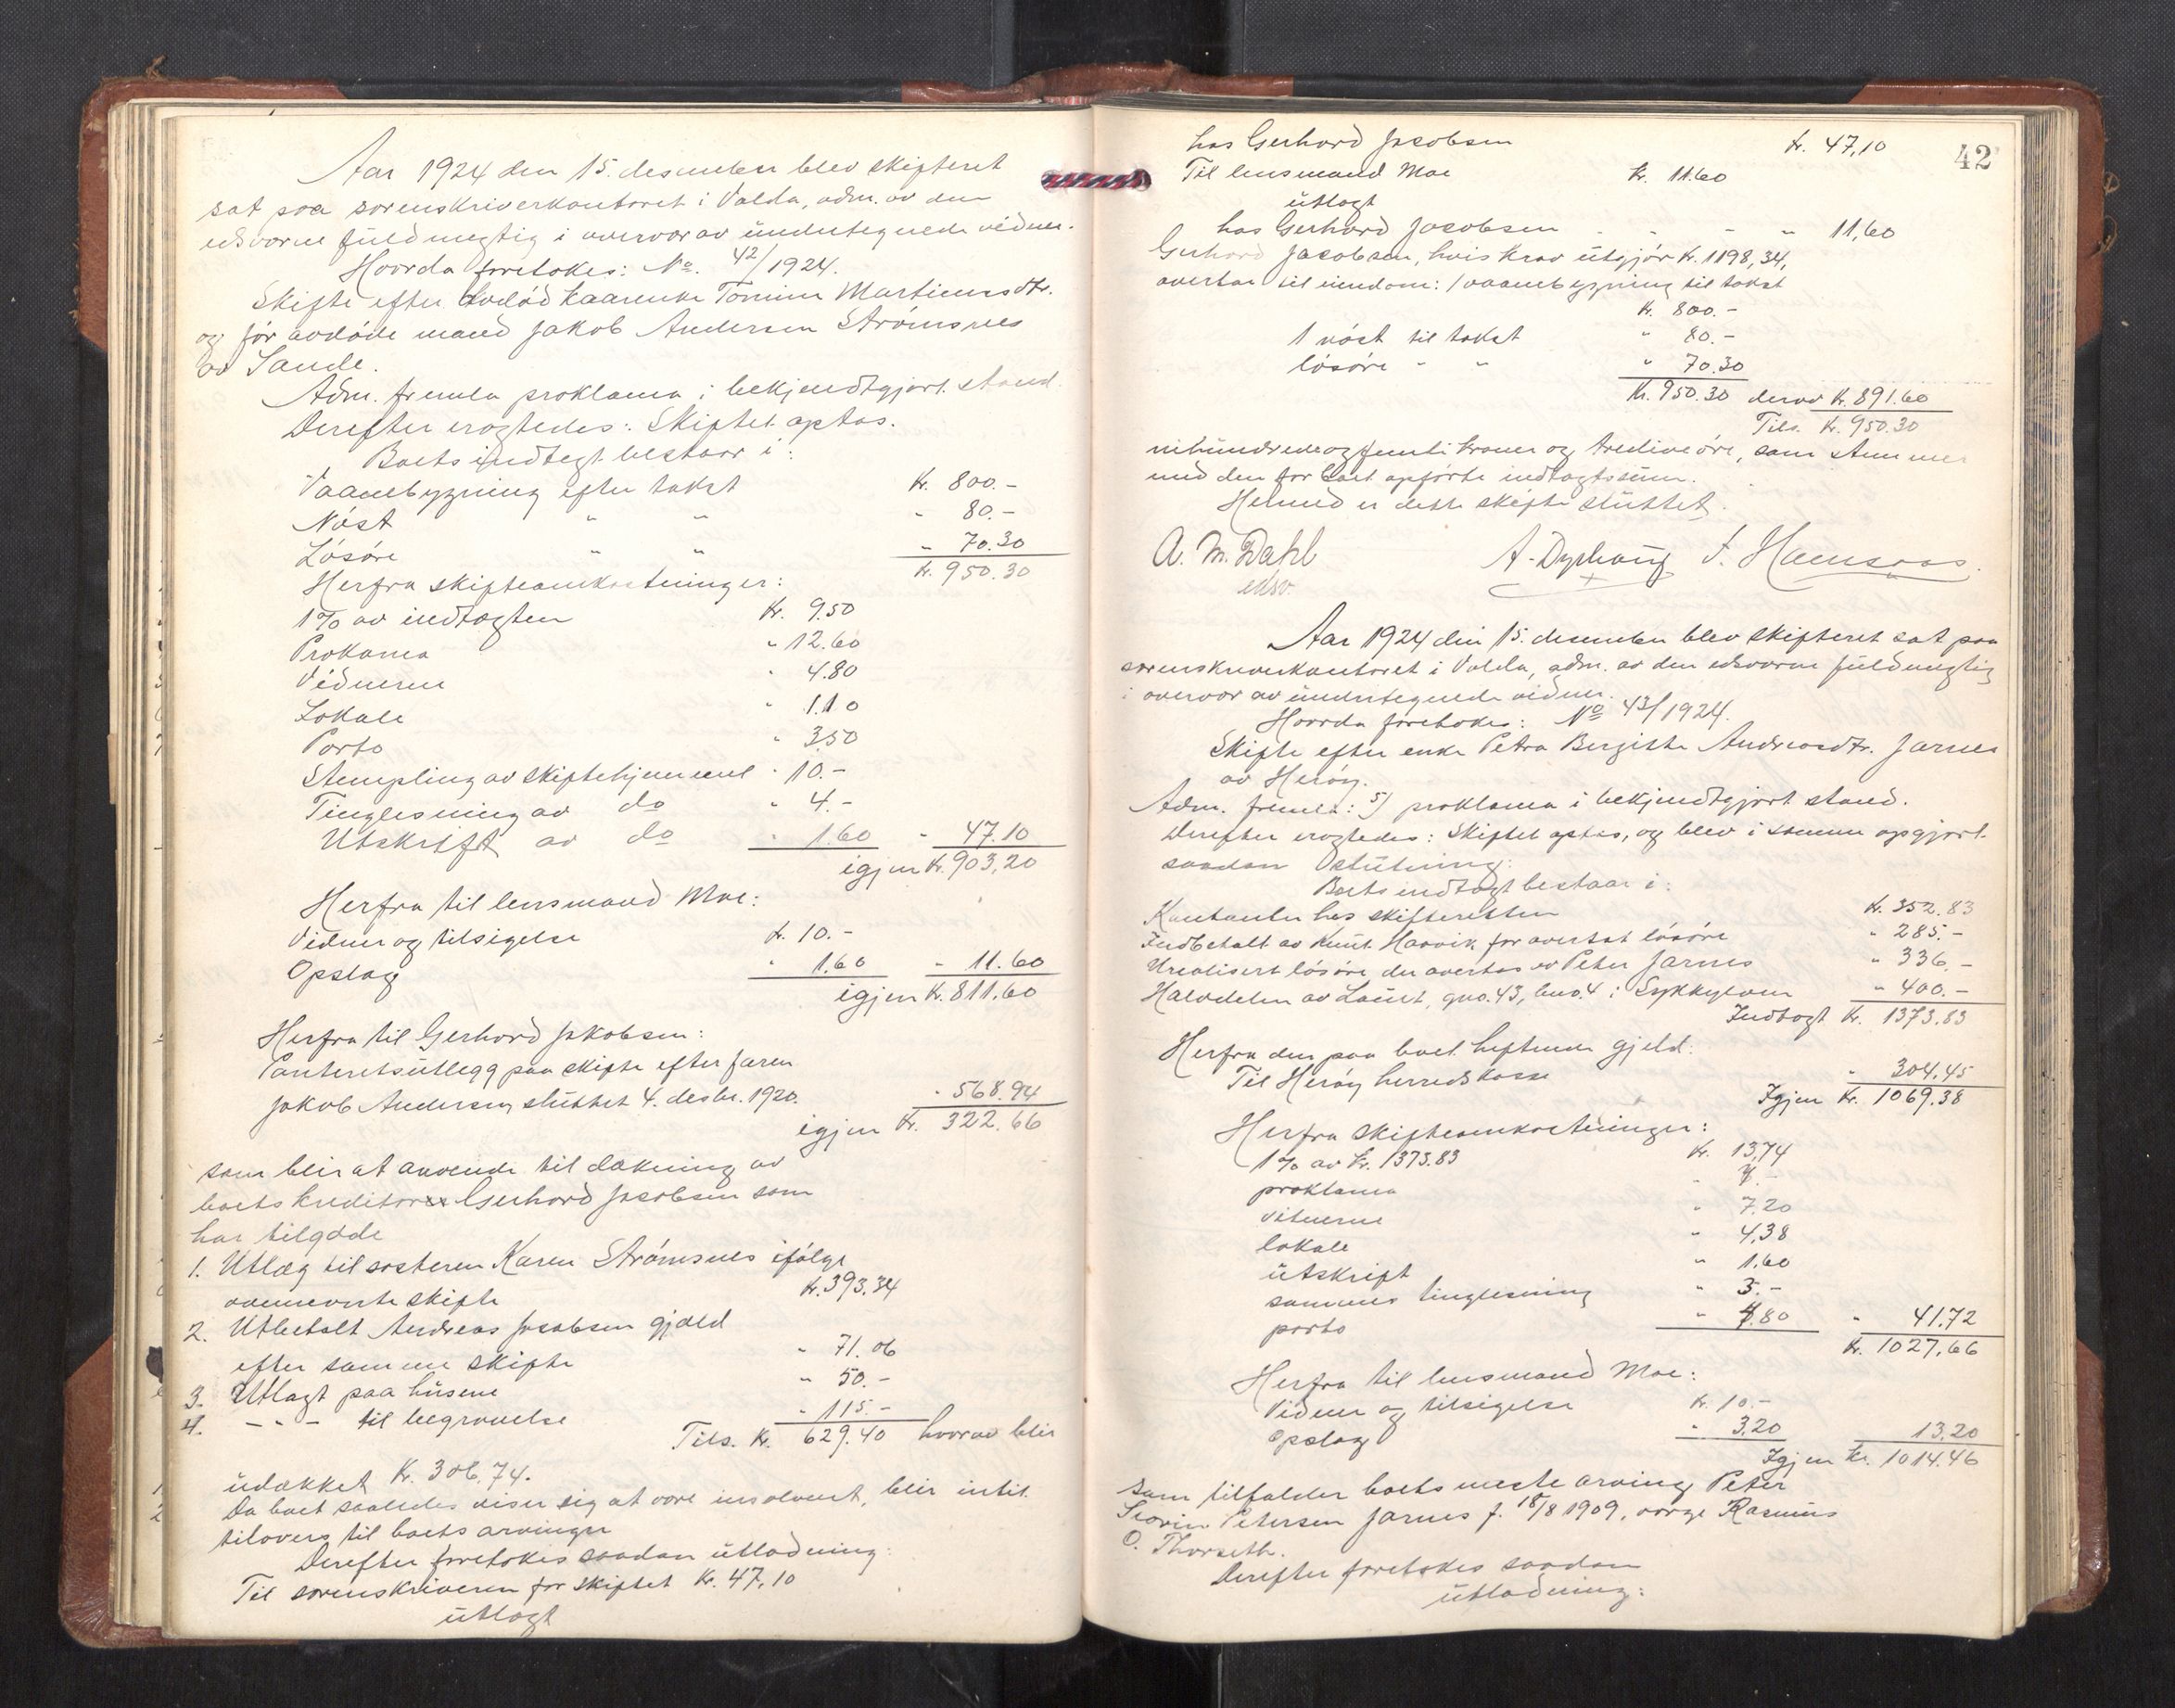 Aar 1924 den 15. desember blev skifteret
sat paa sorenskriverkontoret i Volda, adm. av den
edsvorne fuldmegtig i overvær av undertegnede vidner.
Hvorda foretokes: No. 42/1924.
Skifte efter avdød kaarenke Tomine Martinusdtr.
og før avdøde mand Jakob Andersen Strømsnes
av Sande.
Adm. fremla proklama i bekjendtgjort stand.
Derefter eragtedes: Skiftet optas.
Boets indtegt bestaar i:
Vaanebygning efter takst Kr. 800.-
Nøst " " " 80.-
Løsøre " " " 70.30
Kr. 950.30
Herfra skifteomkostninger:
1% av indtægten Kr. 9.50
Prokama " 12.60
Vidnerne " 4.80
Lokale " 1.10
Porto " 3.50
Stempling av skiftehjemmel " 10.-
Tinglesning av do " 4.-
Utskrift av do " 1.60 " 47.10
igjen Kr. 903,20
Herfra til lensmand Moe:
Vidner og tilsigelse Kr. 10.-
Opslag " 1.60 " 11.60
igjen Kr. 811.60
Herfra til Gerhard Jakobsen:
Panteretsutlegg paa skifte efter faren
Jakob Andersen sluttet 4. desbr. 1920. " 568.94
igjen Kr. 322.66
som blir at anvende til dækning av
boets kreditor Gerhard Jacobsen som
har tilgode
1. Utlæg til søsteren Karen Strømsnes ifølge
ovennevnte skifte Kr. 393.34
2. Utbetalt Andreas Jacobsen gjæld
efter samme skifte " 71.06
3. Utlagt paa husene " 50.-
4. - " - til begravelse " 115.-
Tils. Kr. 629.40 hvorav blir
udækket Kr. 306.74.
Da boet saaledes viser sig at være insolvent, blir intet
tilovers til boets arvinger
Derefter foretokes saadan utlodning:
Til sorenskriveren for skiftet Kr. 47,10
utlagt
42
hos Gerhard Jacobsen Kr. 47,10
Til lensmand Moe Kr. 11.60
utlagt
hos Gerhard Jacobsen - - - " 11,60
Gerhard Jacobsen, hvis krav utgjør Kr. 1198,34,
overtar til eiendom: 1 vaanebygning til takst
Kr. 800.-
1 nøst til takst " 80.-
løsøre " " " 70.30
Kr. 950.30 derav Kr. 891.60
Tils. Kr. 950.30
nihundredeogfemti kroner og tredive øre, som stemmer
med den for boet opførte indtægtssum.
Hermed er dette skifte sluttet.
A. M. Dahl A. Dyrhaug
edsv.
Aar 1924 den 15. desember blev skifteret sat paa
sorenskriverkontoret i Volda, adm. av den edsvorne fuldmegtig
i overvær av undertegnede vidner.
Hvorda foretokes: No 43/1924.
Skifte efter enke Petra Bergithe Andreasdtr. Jarnes
av Herøy.
Adm. fremla: 5) proklama i bekjendtgjort stand.
Derefter eragtedes: Skiftet optas, og blev i samme opgjort
saadan slutning:
Boets indtægt bestaar i:
Kontanter hos skifteretten Kr. 352.83
Indbetalt av Knut Haavik for overtat løsøre " 285.-
Urealisert løsøre der overtas av Peter Jarnes " 336.-
Halvdelen av Laurt, gno. 43, bno. 4 i Sykkylven " 400.-
Indtægt Kr. 1373.83
Herfra den paa boet heftende gjeld:
Til Herøy herredskasse " 304.45
Igjen Kr. 1069.38
Herfra skifteomkostninger:
1% av Kr. 1373.83 Kr. 13,74
proklama " 7.-
vitnerne " 7.20
lokale " 4,38
utskrift " 1.60
sammes tinglesning " 3.-
porto " 4.80 " 41.72
Kr. 1027,66
Herfra til lensmand Moe:
Vidner og tilsigelse Kr. 10.-
Opslag " 3.20 13,20
Igjen Kr. 1014.46
som tilfalder boets neste arving Peter
Severin Petersen Jarnes f. 18/8 1909, verge Rasmus
O. Thorseth.
Derefter foretokes saadan
utlodning: